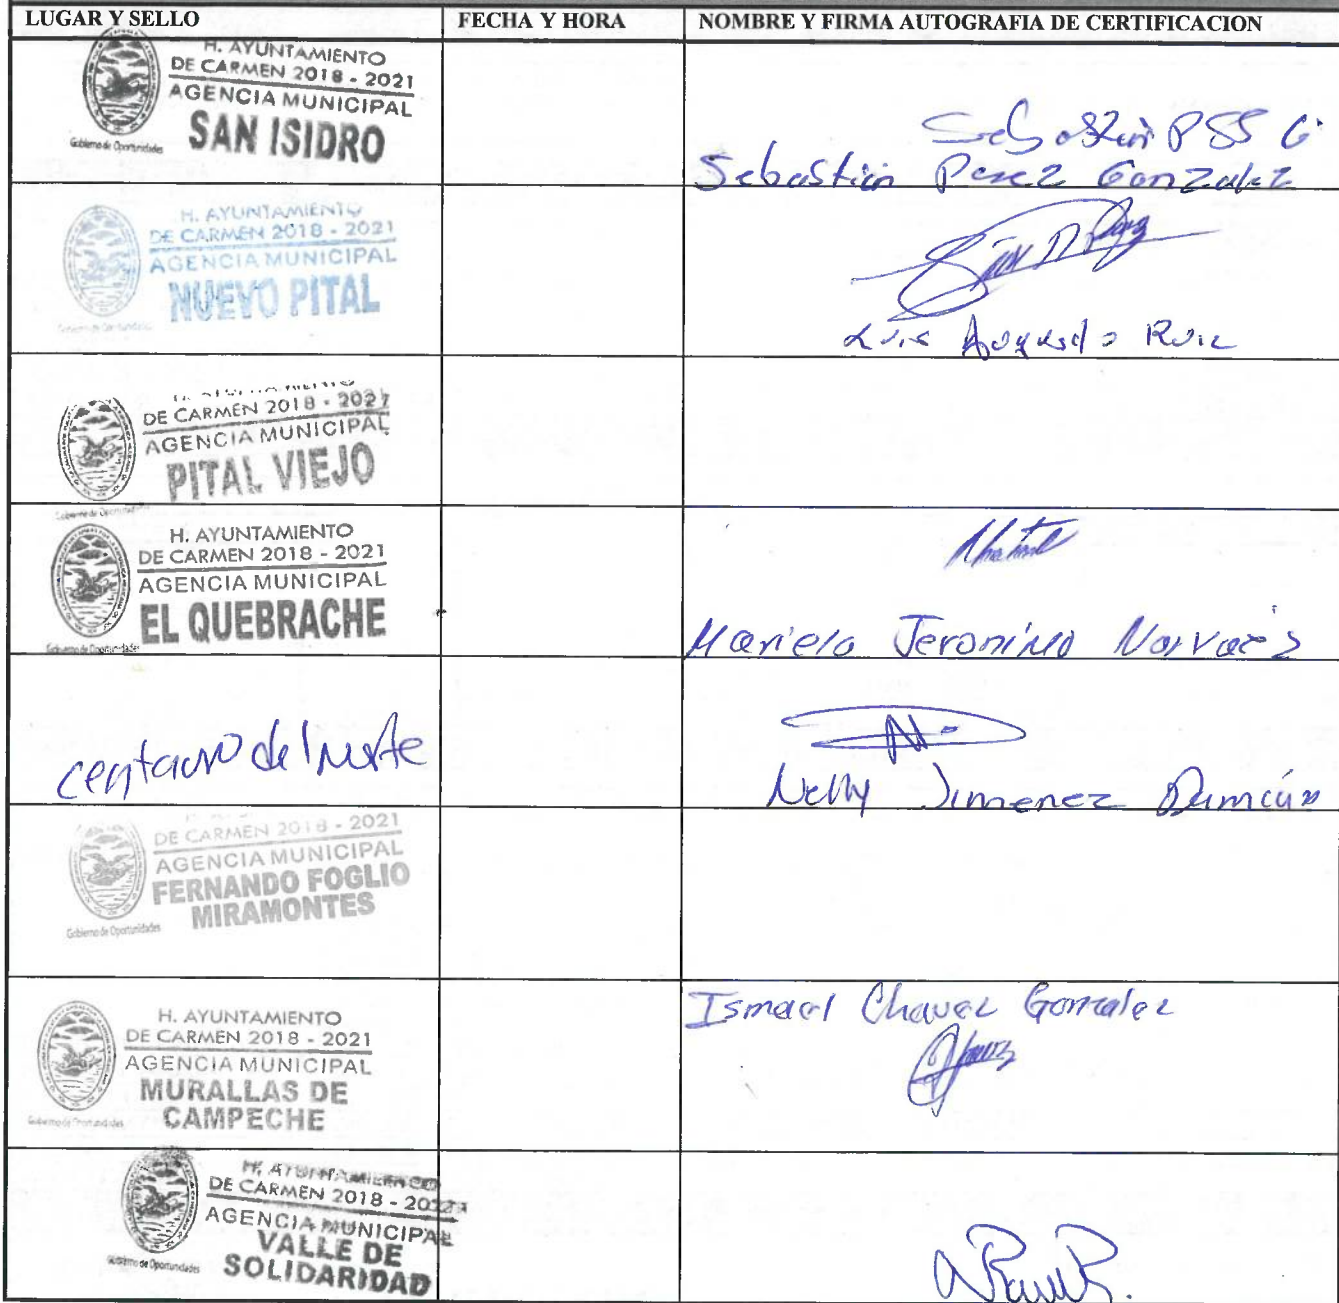 LUGAR Y SELLO FECHA Y HORA NOMBRE Y FIRMA AUTOGRAFIA DE CERTIFICACION
H. AYUNTAMIENTO
DE CARMEN 2018 - 2021
AGENCIA MUNICIPAL
SAN ISIDRO
Gobierno de Oportunidades
Sebastian Perez Gonzalez
H. AYUNTAMIENTO
DE CARMEN 2018 - 2021
AGENCIA MUNICIPAL
NUEVO PITAL
Gobierno de Oportunidades
Luis Augusto Ruiz
DE CARMEN 2018 - 2021
AGENCIA MUNICIPAL
PITAL VIEJO
Gobierno de Oportunidades
H. AYUNTAMIENTO
DE CARMEN 2018 - 2021
AGENCIA MUNICIPAL
EL QUEBRACHE
Gobierno de Oportunidades
Mariela Jeronimo Narvaez
centauro del norte
Nelly Jimenez
DE CARMEN 2018 - 2021
AGENCIA MUNICIPAL
FERNANDO FOGLIO
MIRAMONTES
Gobierno de Oportunidades
Ismael Chavez Gonzalez
H. AYUNTAMIENTO
DE CARMEN 2018 - 2021
AGENCIA MUNICIPAL
MURALLAS DE
CAMPECHE
Gobierno de Oportunidades
H. AYUNTAMIENTO
DE CARMEN 2018 - 2021
AGENCIA MUNICIPAL
VALLE DE
SOLIDARIDAD
Gobierno de Oportunidades